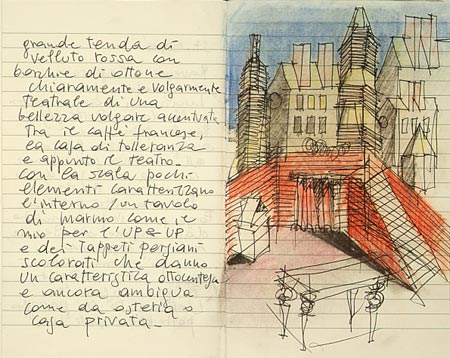 grande tenda di
velluto rossa con
borchie di ottone
chiaramente e volgarmente
teatrale di una
bellezza volgare accentuata
tra il caffè francese,
la casa di tolleranza
e appunto il teatro
con la scala pochi
elementi caratterizzano
l'interno / un tavolo
di marmo come il
mio per l'UP&UP
e dei tappeti persiani
scoloriti che danno
un caratteristica ottocentesca
e ancora ambigua
come da osteria o
casa privata -